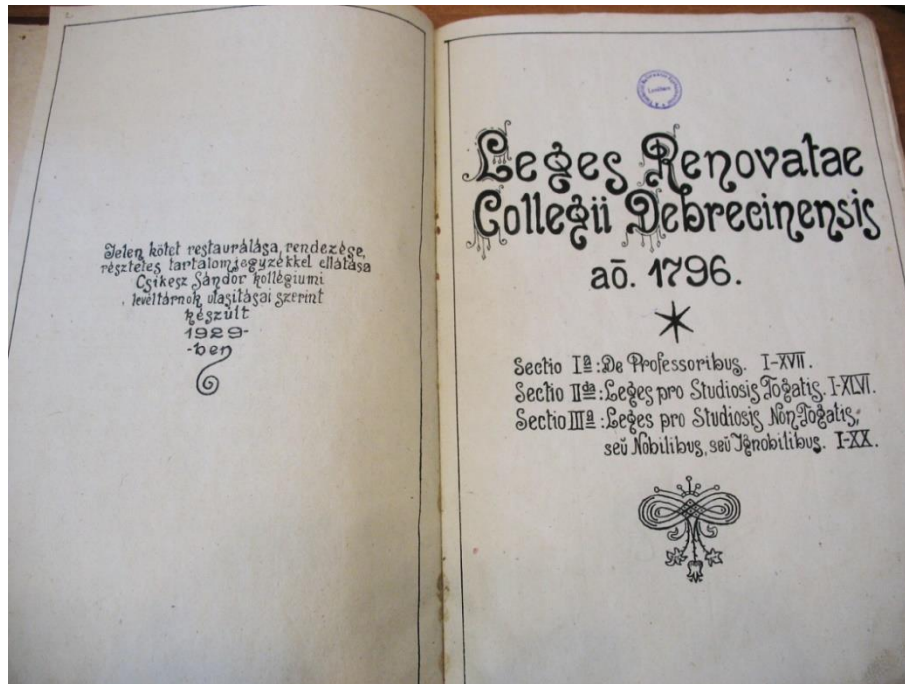 Jelen kötet restaurálása, rendezése,
részletes tartalomjegyzékkel ellátása
Csikesz Sándor kollégiumi
levéltárnok utasításai szerint
készült
1929-
-ben
Leges Renovatae
Collegii Debrecinensis
aō. 1796.
Sectio Iª: De Professoribus. I-XVII.
Sectio IIda: Leges pro Studiosis Togatis. I-XLVI.
Sectio IIIª: Leges pro Studiosis Non-Togatis,
seŭ Nobilibus, seŭ Ignobilibus. I-XX.